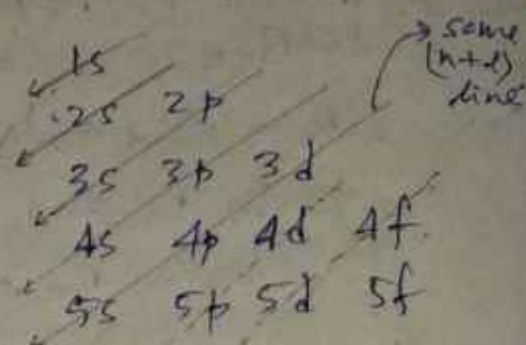 1s
2s 2p
3s 3p 3d
4s 4p 4d 4f
5s 5p 5d 5f
same
(n+l)
line